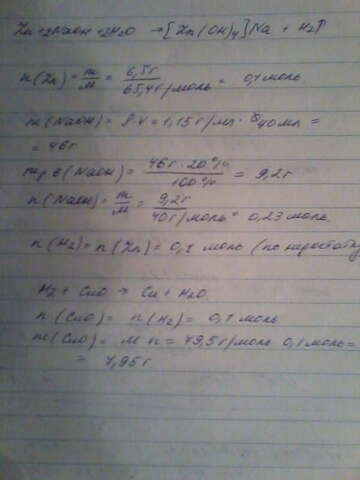 Zn+2NaOH+2H₂O → [Zn(OH)₄]Na + H₂↑
n(Zn) = m/M = 6,5г/65,4г/моль = 0,1 моль
m(NaOH) = ρ·V = 1,15 г/мл · 40мл =
= 46г
m р.в (NaOH) = 46г · 20%/100% = 9,2г
n(NaOH) = m/M = 9,2г/40г/моль = 0,23 моль
n(H₂) = n(Zn) = 0,1 моль (по недостатку
H₂ + CuO → Cu + H₂O
n(CuO) = n(H₂) = 0,1 моль
m(CuO) = M · n = 79,5г/моль 0,1моль=
= 7,95г